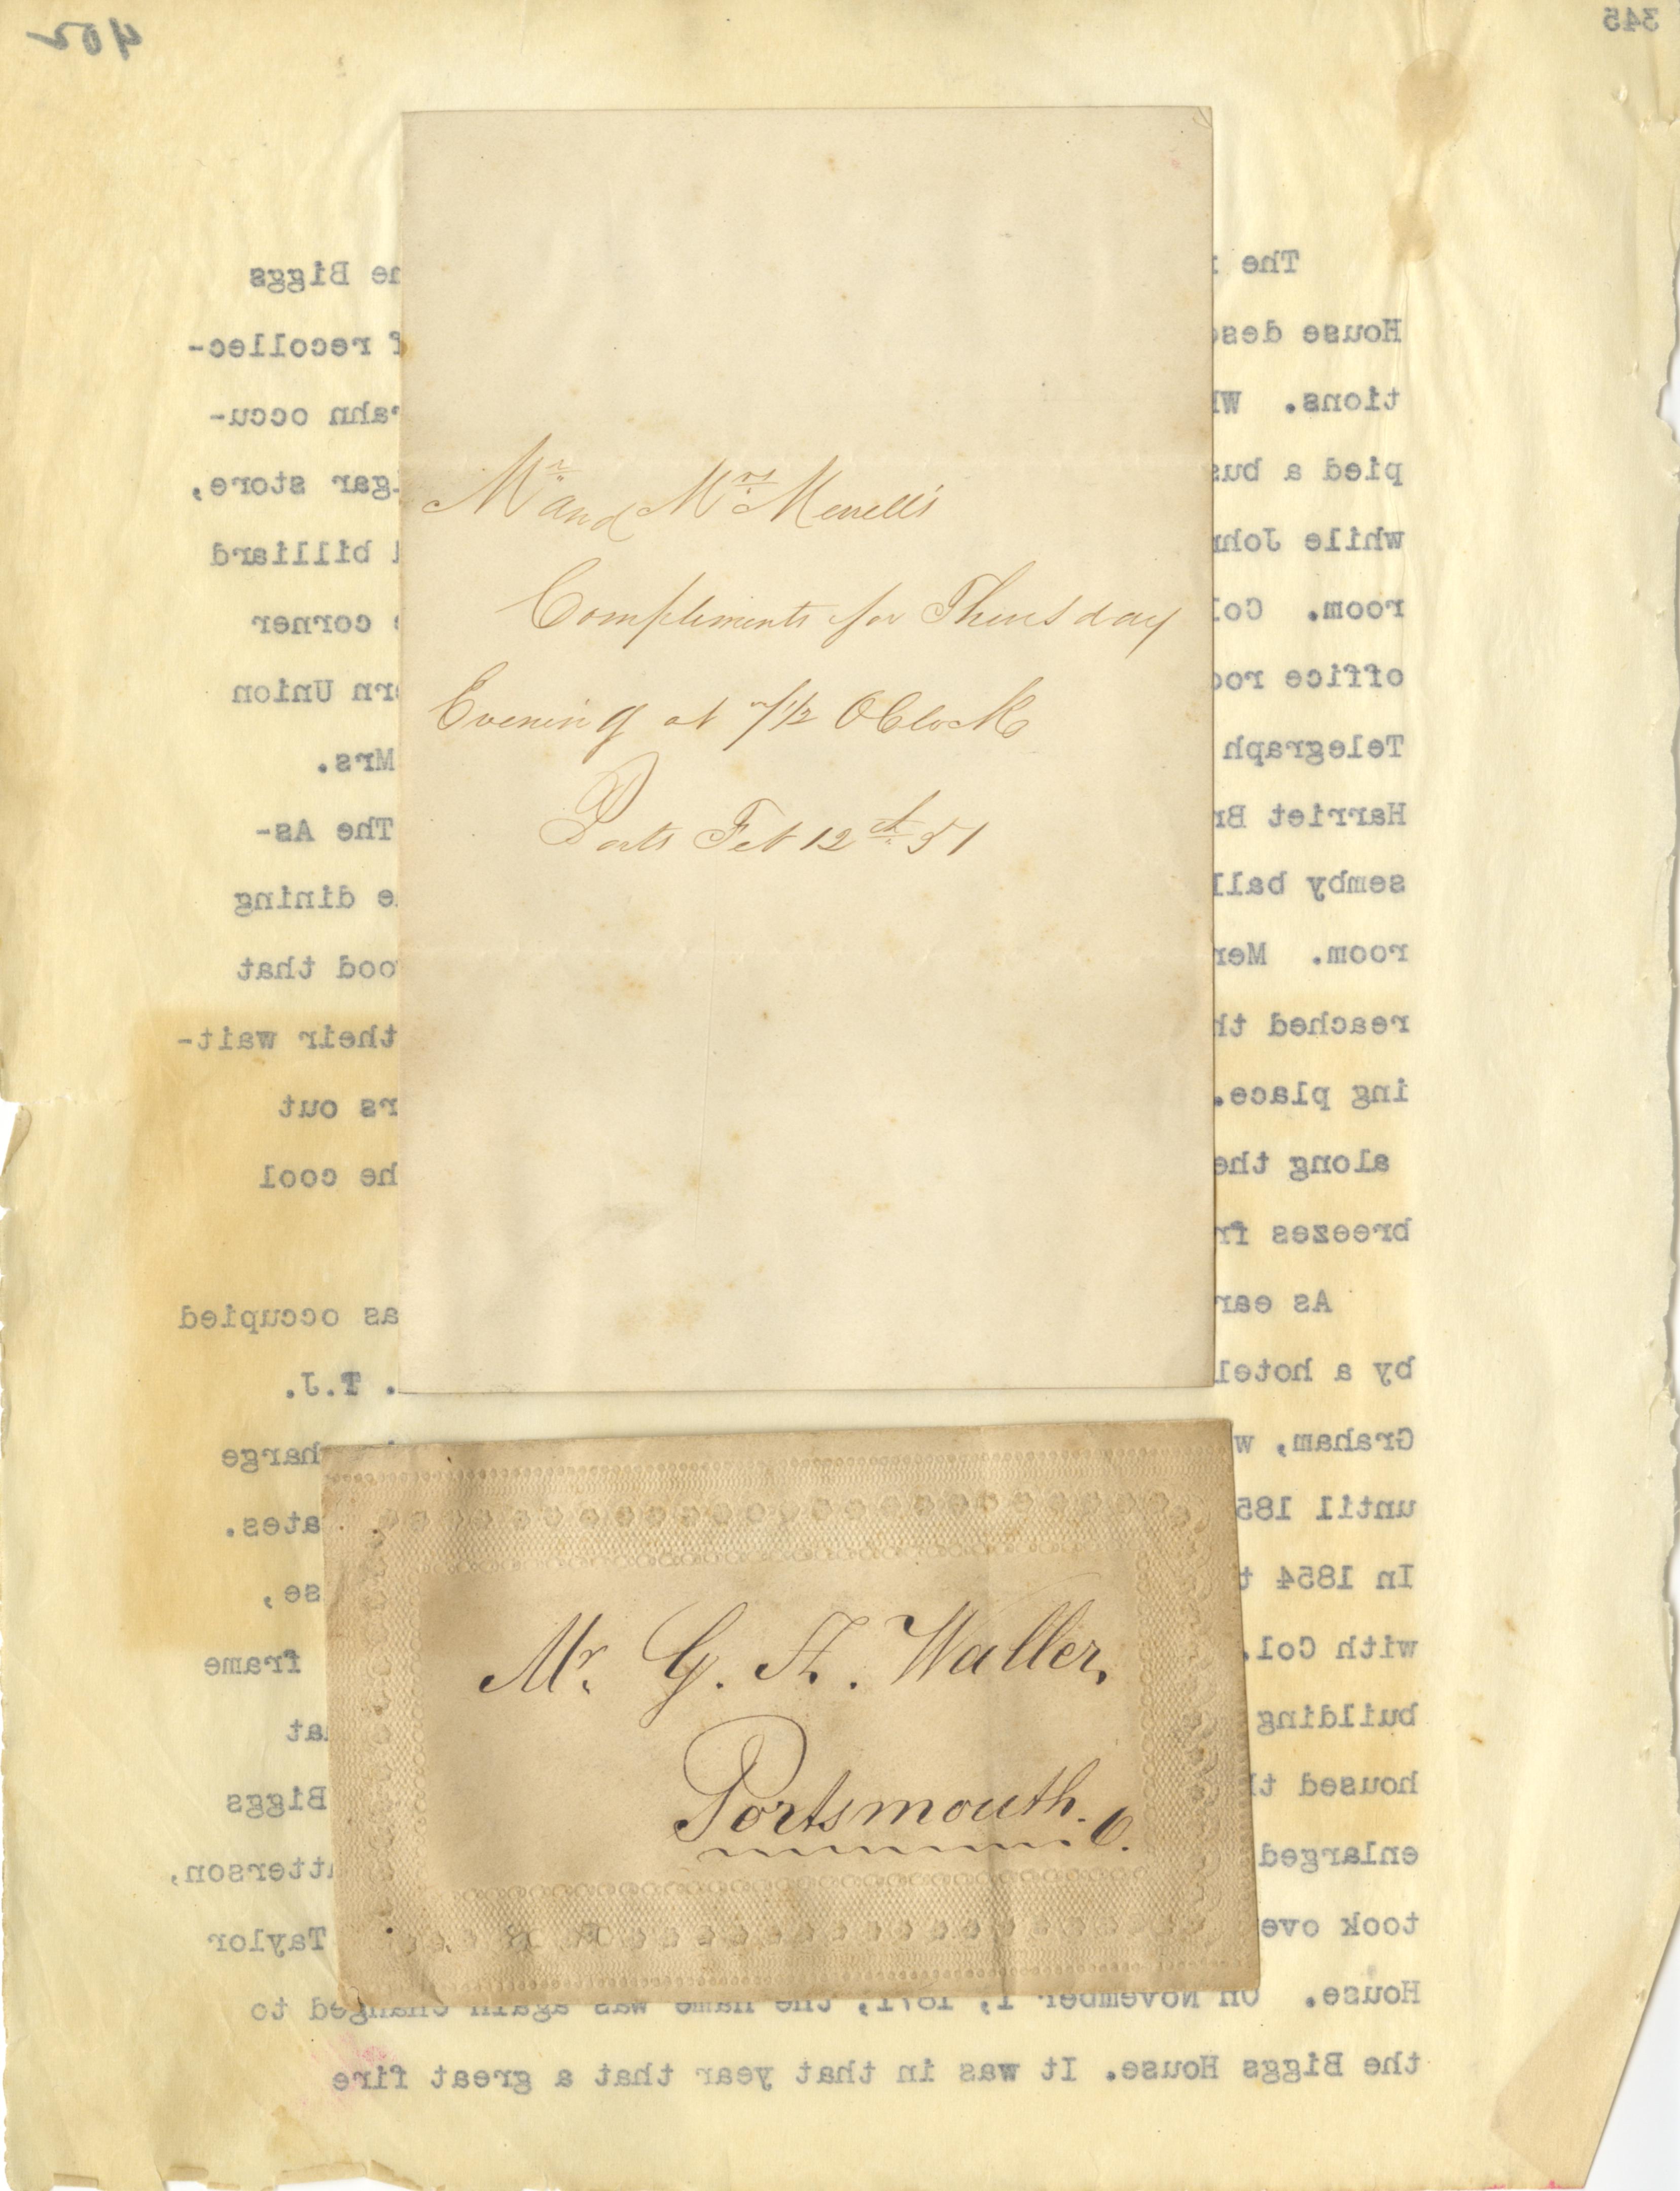 402
345
Mr and Mrs Merrell's
Compliments for Thursday
Evening at 7 1/2 OClock
Ports Feb 12th 51
Mr. G. A. Waller,
Portsmouth. O.
The Biggs
House recollec-
tions. occu-
pied a store,
while billiard
room. corner
office Union
Telegraph Mrs.
Harriet The As-
semby ball dining
room. that
reached their wait-
ing place. out
along the cool
breezes
As occupied
by a hotel T.J.
Graham,
until
In 1854
with Col. frame
building
housed Biggs
enlarged
took Taylor
House. On November 1, 1871, the name was again changed to
the Biggs House. It was in that year that a great fire